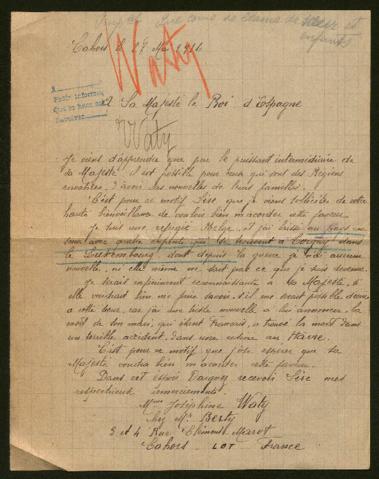 Cahors le 17 Mai 1916
Waty
A Sa Majesté le Roi d'Espagne
Waty
Je viens d'apprendre que par le puissant intermédiaire de
Sa Majesté il est possible pour ceux qui ont des Régions
envahies d'avoir des nouvelles de leurs familles.
C'est pour ce motif Sire que je viens solliciter de votre
haute bienveillance de vouloir bien m'accorder cette faveur.
Je suis une refugié Belge et j'ai laissé au Pays ma
qui se trouvent à Torgny dans
le Luxembourg dont depuis la guerre je n'ai aucune
nouvelle, ni elle même ne sait pas ce que je suis devenue.
Je serais infiniment reconnaissante à Sa Majesté si
elle voudrait bien me faire savoir s'il me serait possible
car j'ai une triste nouvelle à lui annoncer la
mort de son mari, qui étant Français a trouvé la mort dans
un terrible accident dans une usine au Havre.
C'est pour ce motif que j'ose espérer que Sa
Majesté voudra bien m'accorder cette faveur.
Dans cet espoir Daignez recevoir Sire mes
respectueux remerciements.
Mme Joséphine Waty
chez Mr Berty
3 et 4 Rue Clément Marot
Cahors LOT France